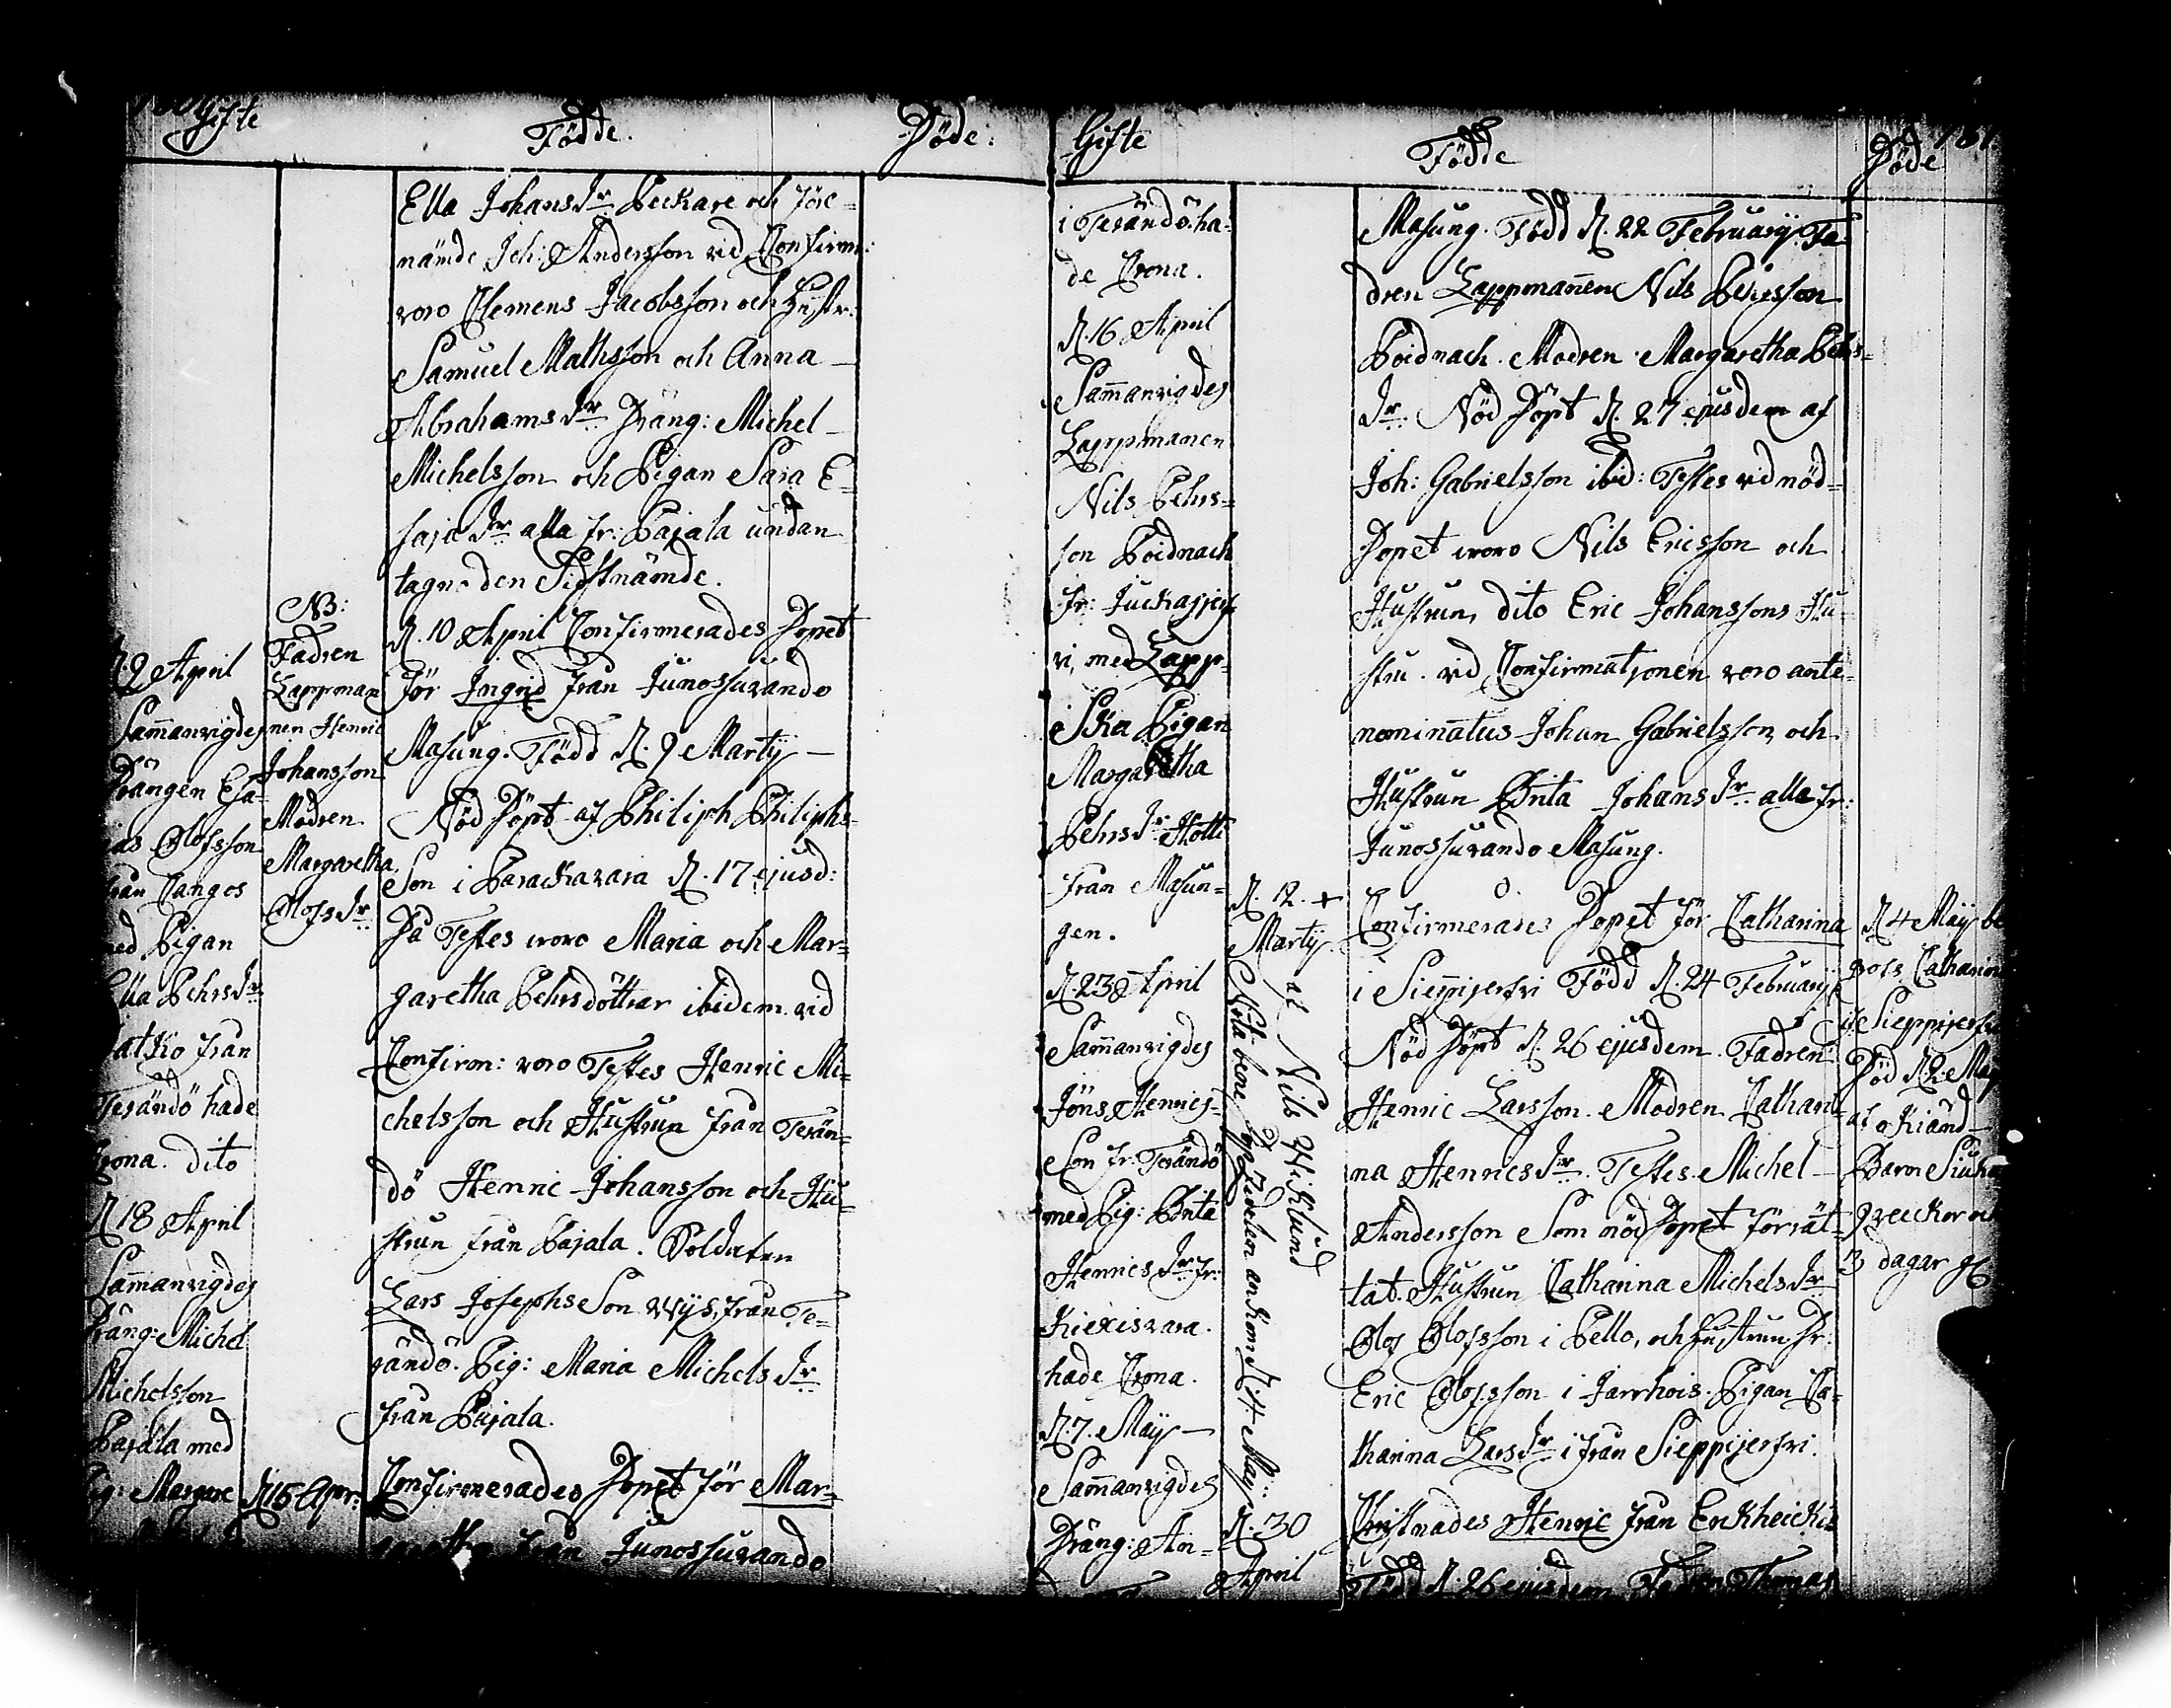 Gifte
Födde.
Döde:
D. 9 April
Sam̄anvigdes
Drängen Esa-
ias Olofsson
från Cangos
med Pigan
Ella Pehrs Dr
från
Terändö hade
Crona. dito
D. 18 April
Sam̄anvigdes
Dräng: Michel
Michelsson
Pajala med
Pig: Margare
NB:
Fadren
Lappman̄
nen Henric
Johansson
Modren
Margaretha
Olofs Dr
D. 15 Apr:
Ella Johans Dr Peckare och före-
nämde Joh: Andersson vid Confirm:
voro Clemens Jacobsson och Hustr:
Samuel Mathsson och Anna
Abrahams Dr Dräng: Michel
Michelsson och Pigan Sara E-
saiæ Dr alla fr: Pajala undan
tagn. den Sistnämde.
D. 10 April Confirmerades Dopet
för Ingrid från Junossuvando
Masung. Född D. 9 Martij
Nöd Döpt af Philiph Philiphs-
Son i Parackavara D. 17 ejusd:
Då Testes woro Maria och Mar-
garetha Pehrsdöttrar ibidem. vid
Confirm: voro Testes Henric Mi-
chelsson och Hustrun från Terän-
dö Henric Johansson och Hu-
strun från Pajala. Soldaten
Lars Josephs Son Wijs, från Te-
rändö. Pig: Maria Michels Dr
från Pajala.
Confirmerades Dopet för Mar-
garetha från Junossuvando
Gifte
Födde
Döde
131.
i Terändö. ha-
de Crona.
D. 16 April
Sam̄anvigdes
Lappmanen
Nils Pehrs-
son Poidnach
fr: Juckasjerf
vi, med Lapp-
Ska Pigan
Margaretha
Pehrs Dr Hotti
från Masun-
gen.
D. 23 April
Sam̄anvigdes
Jöns Henrics-
Son fr: Terändö
med Pig: Brita
Henrics Dr fr:
Kiexisvara.
hade Crona.
D. 7. Maij
Sam̄anvigdes
Dräng: An-
D. 12. +
Martij
af Nils Wiklund
Nota bene Zedelen ankom D. 4 Maij:
D. 30
April
Masung. Född D. 22 Februarij. Fa
dren Lappman̄en Nils Pehrsson
Poidnach. Modren Margaretha Pehrs-
Dr. Nöd Döpt D. 27 ejusdem af
Joh: Gabrielsson ibid: Testes vid nöd-
Dopet woro Nils Ericsson och
Hustrun, dito Eric Johanssons Hu-
stru. vid Confirmationen voro ante-
nominatus Johan Gabrielsson, och
Hustrun Brita Johans Dr alla fr:
Junossuvando Masung.
Confirmerades Dopet för Catharina
i Sieppijerfvi Född D. 24 Februarij
Nöd Döpt D. 26 ejusdem. Fadren
Henric Larsson. Modren Cathari-
na Henrics Dr. Testes Michel
Andersson Som nöd Dopet förrät-
tat. Hustrun Catharina Michels Dr
Olof Olofsson i Pello, och Hustrun Dr:
Eric Olofsson i Jarrhois. Pigan Ca-
tharina Lars Dr ifrån Sieppijerfvi.
Christnades Henric från Erkheicki
Född D. 26 ejusdem Fadren Thomas
D. 4 Maij be
grofs Catharin
i Sieppijerf
Död D. 2. Maj
af okiänd
Barn Siuk
9 veckor och
3 dagar gl